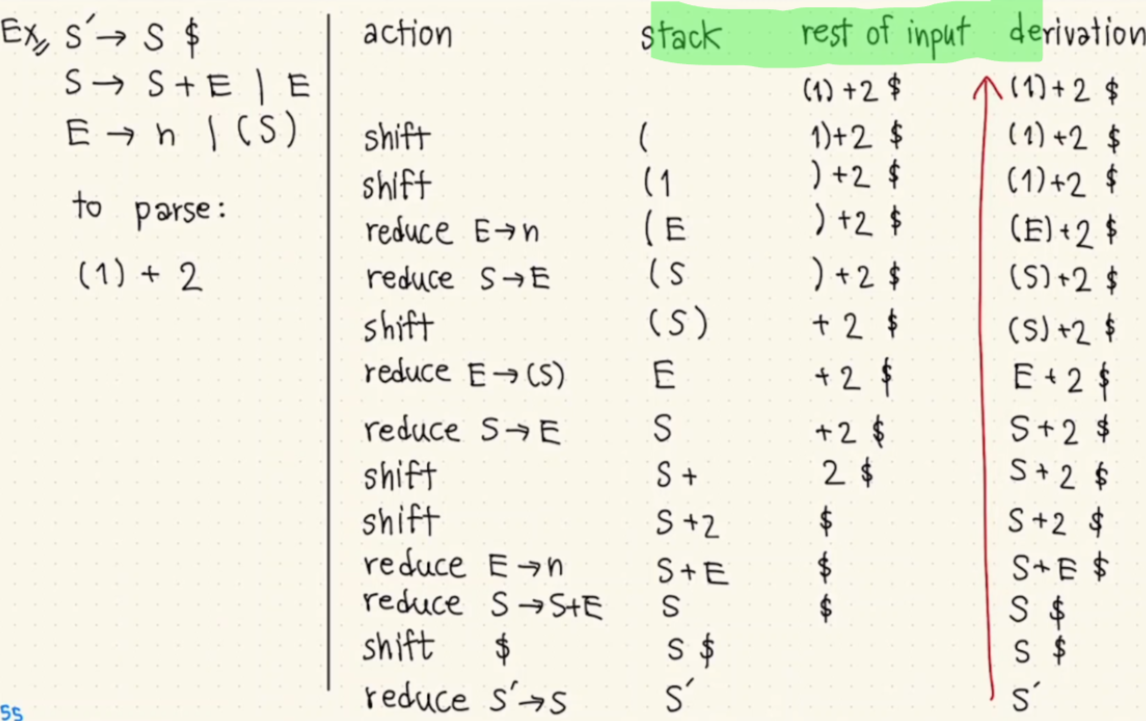 Ex, S′ → S $
S → S + E | E
E → n | (S)
to parse:
(1) + 2
action stack rest of input derivation
(1) +2 $ (1)+2 $
shift ( 1)+2 $ (1)+2 $
shift (1 )+2 $ (1)+2 $
reduce E→n (E )+2 $ (E)+2 $
reduce S→E (S )+2 $ (S)+2 $
shift (S) +2 $ (S)+2 $
reduce E→(S) E +2 $ E+2 $
reduce S→E S +2 $ S+2 $
shift S+ 2 $ S+2 $
shift S+2 $ S+2 $
reduce E→n S+E $ S+E $
reduce S→S+E S $ S $
shift $ S $ S $
reduce S′→S S′ S′
55